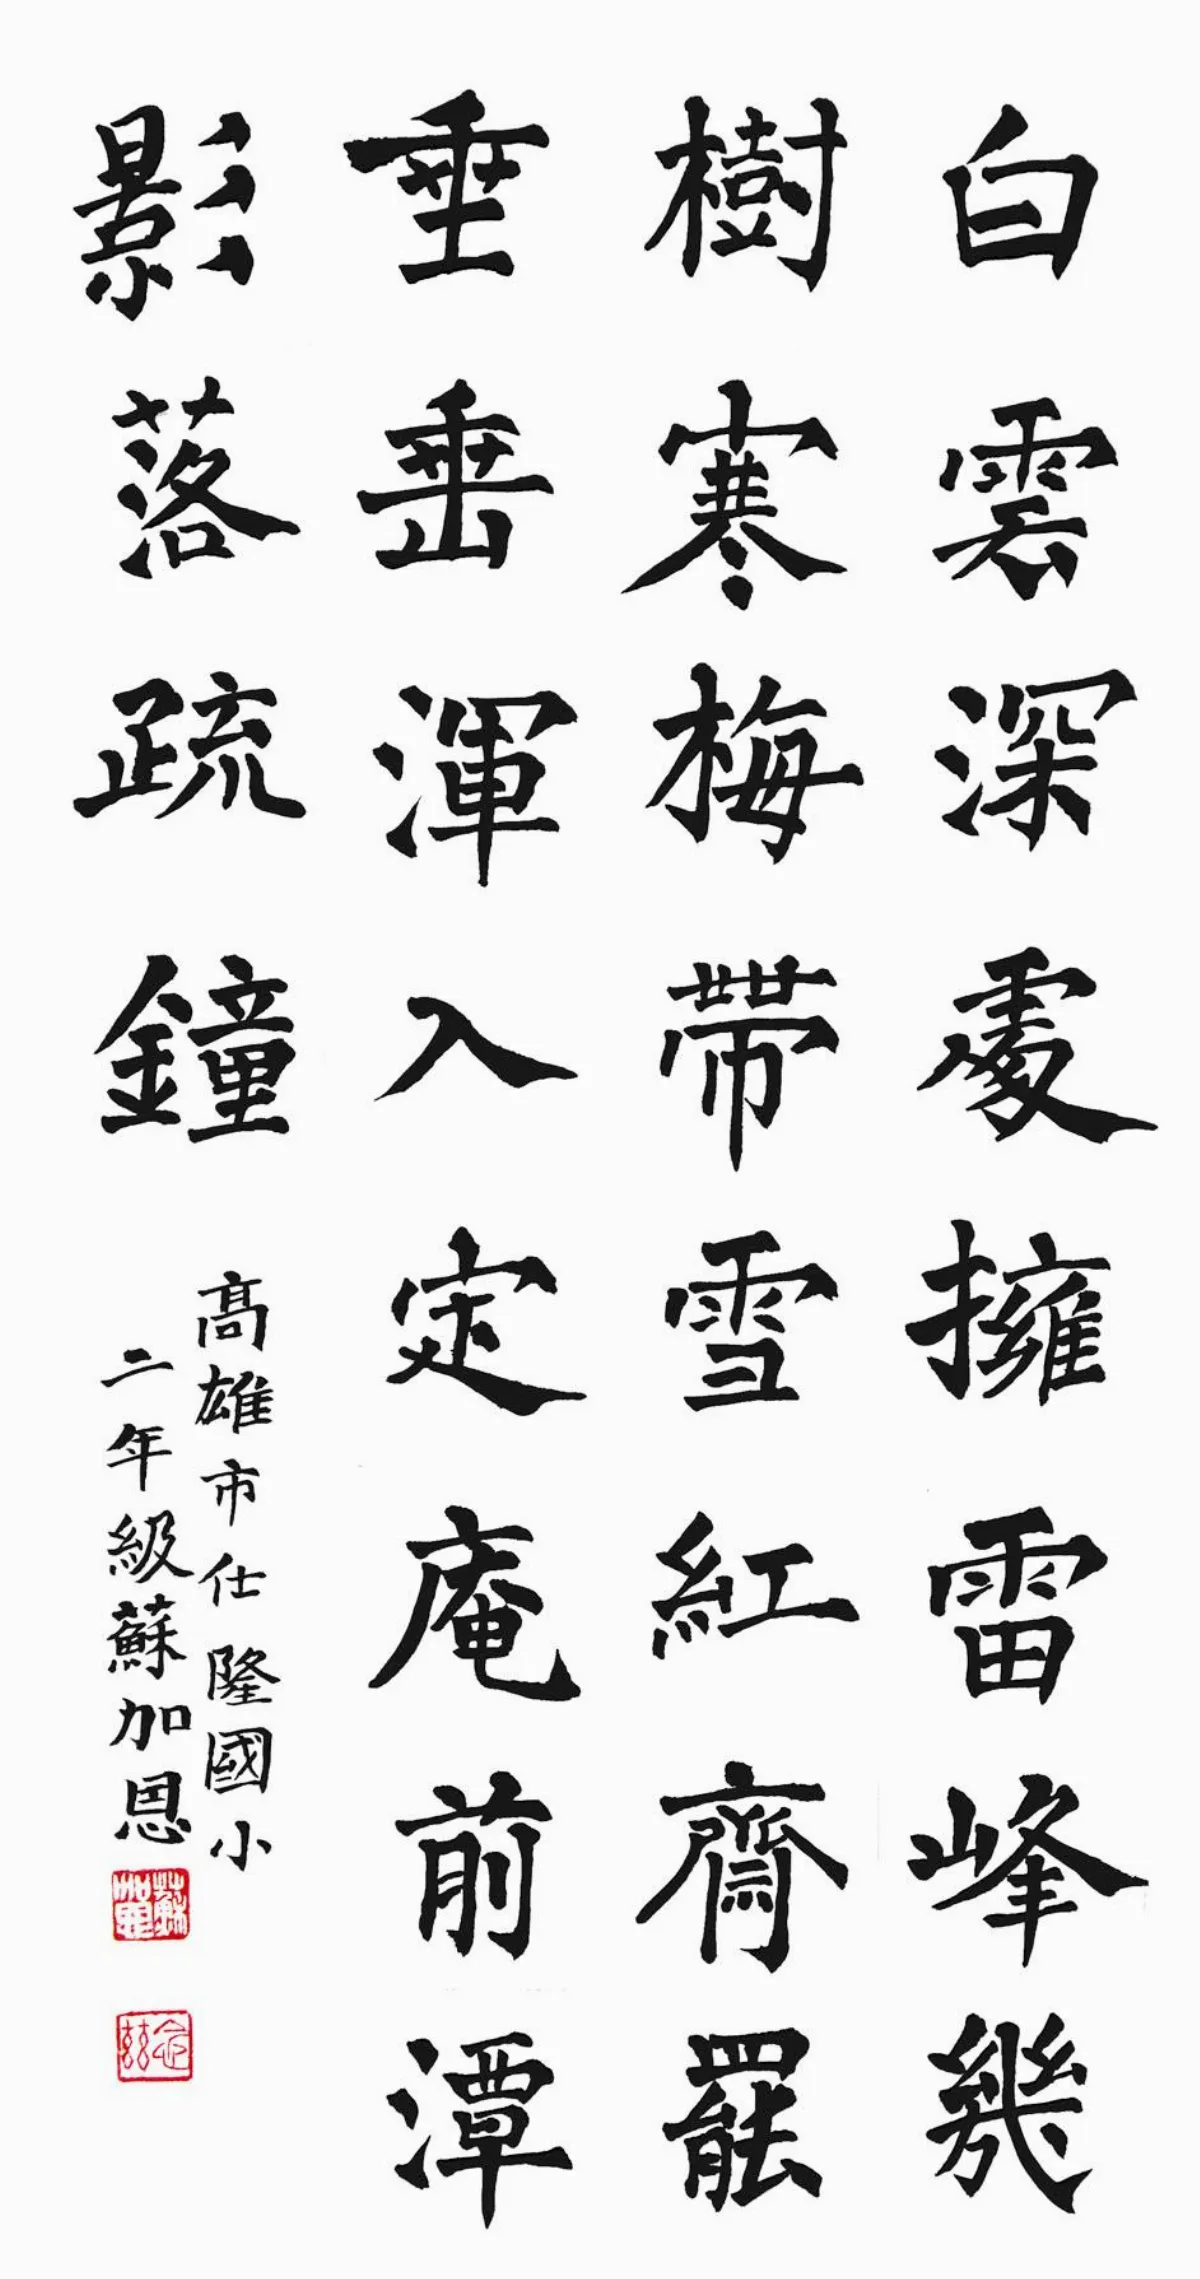 白雲深處擁雷峰幾
樹寒梅帶雪紅齋罷
垂垂渾入定庵前潭
影落疏鐘
高雄市仕隆國小
二年級蘇加恩